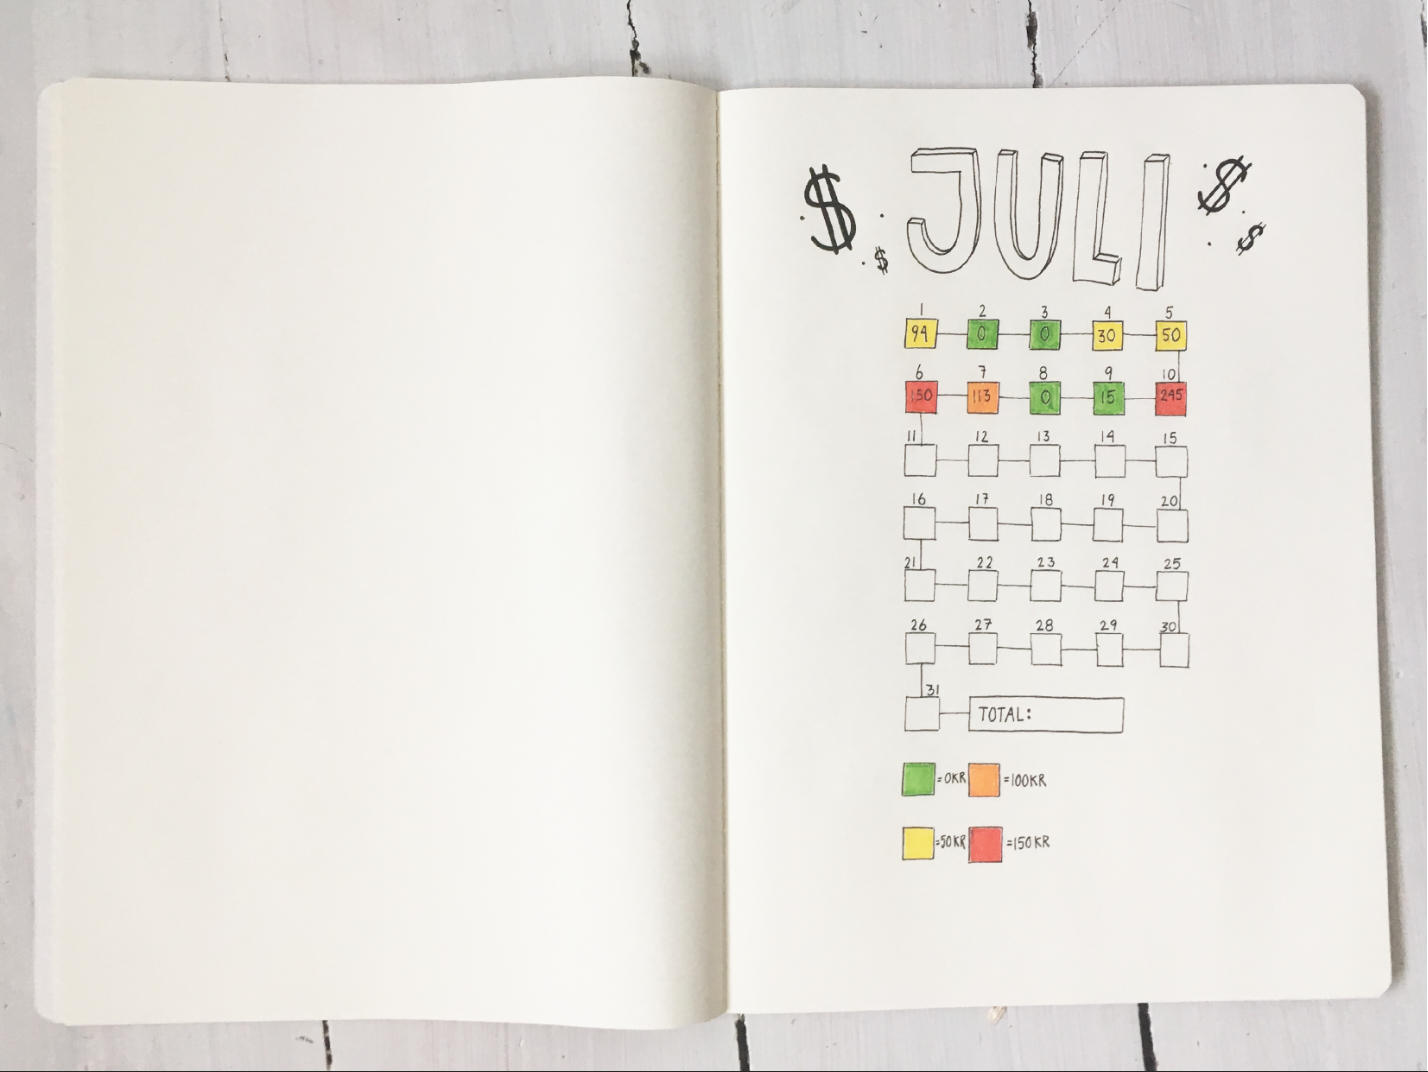 $ $ JULI $ $
1 2 3 4 5
94 0 0 30 50
6 7 8 9 10
150 113 0 15 245
11 12 13 14 15
16 17 18 19 20
21 22 23 24 25
26 27 28 29 30
31
TOTAL:
=0KR =100KR
=50KR =150KR